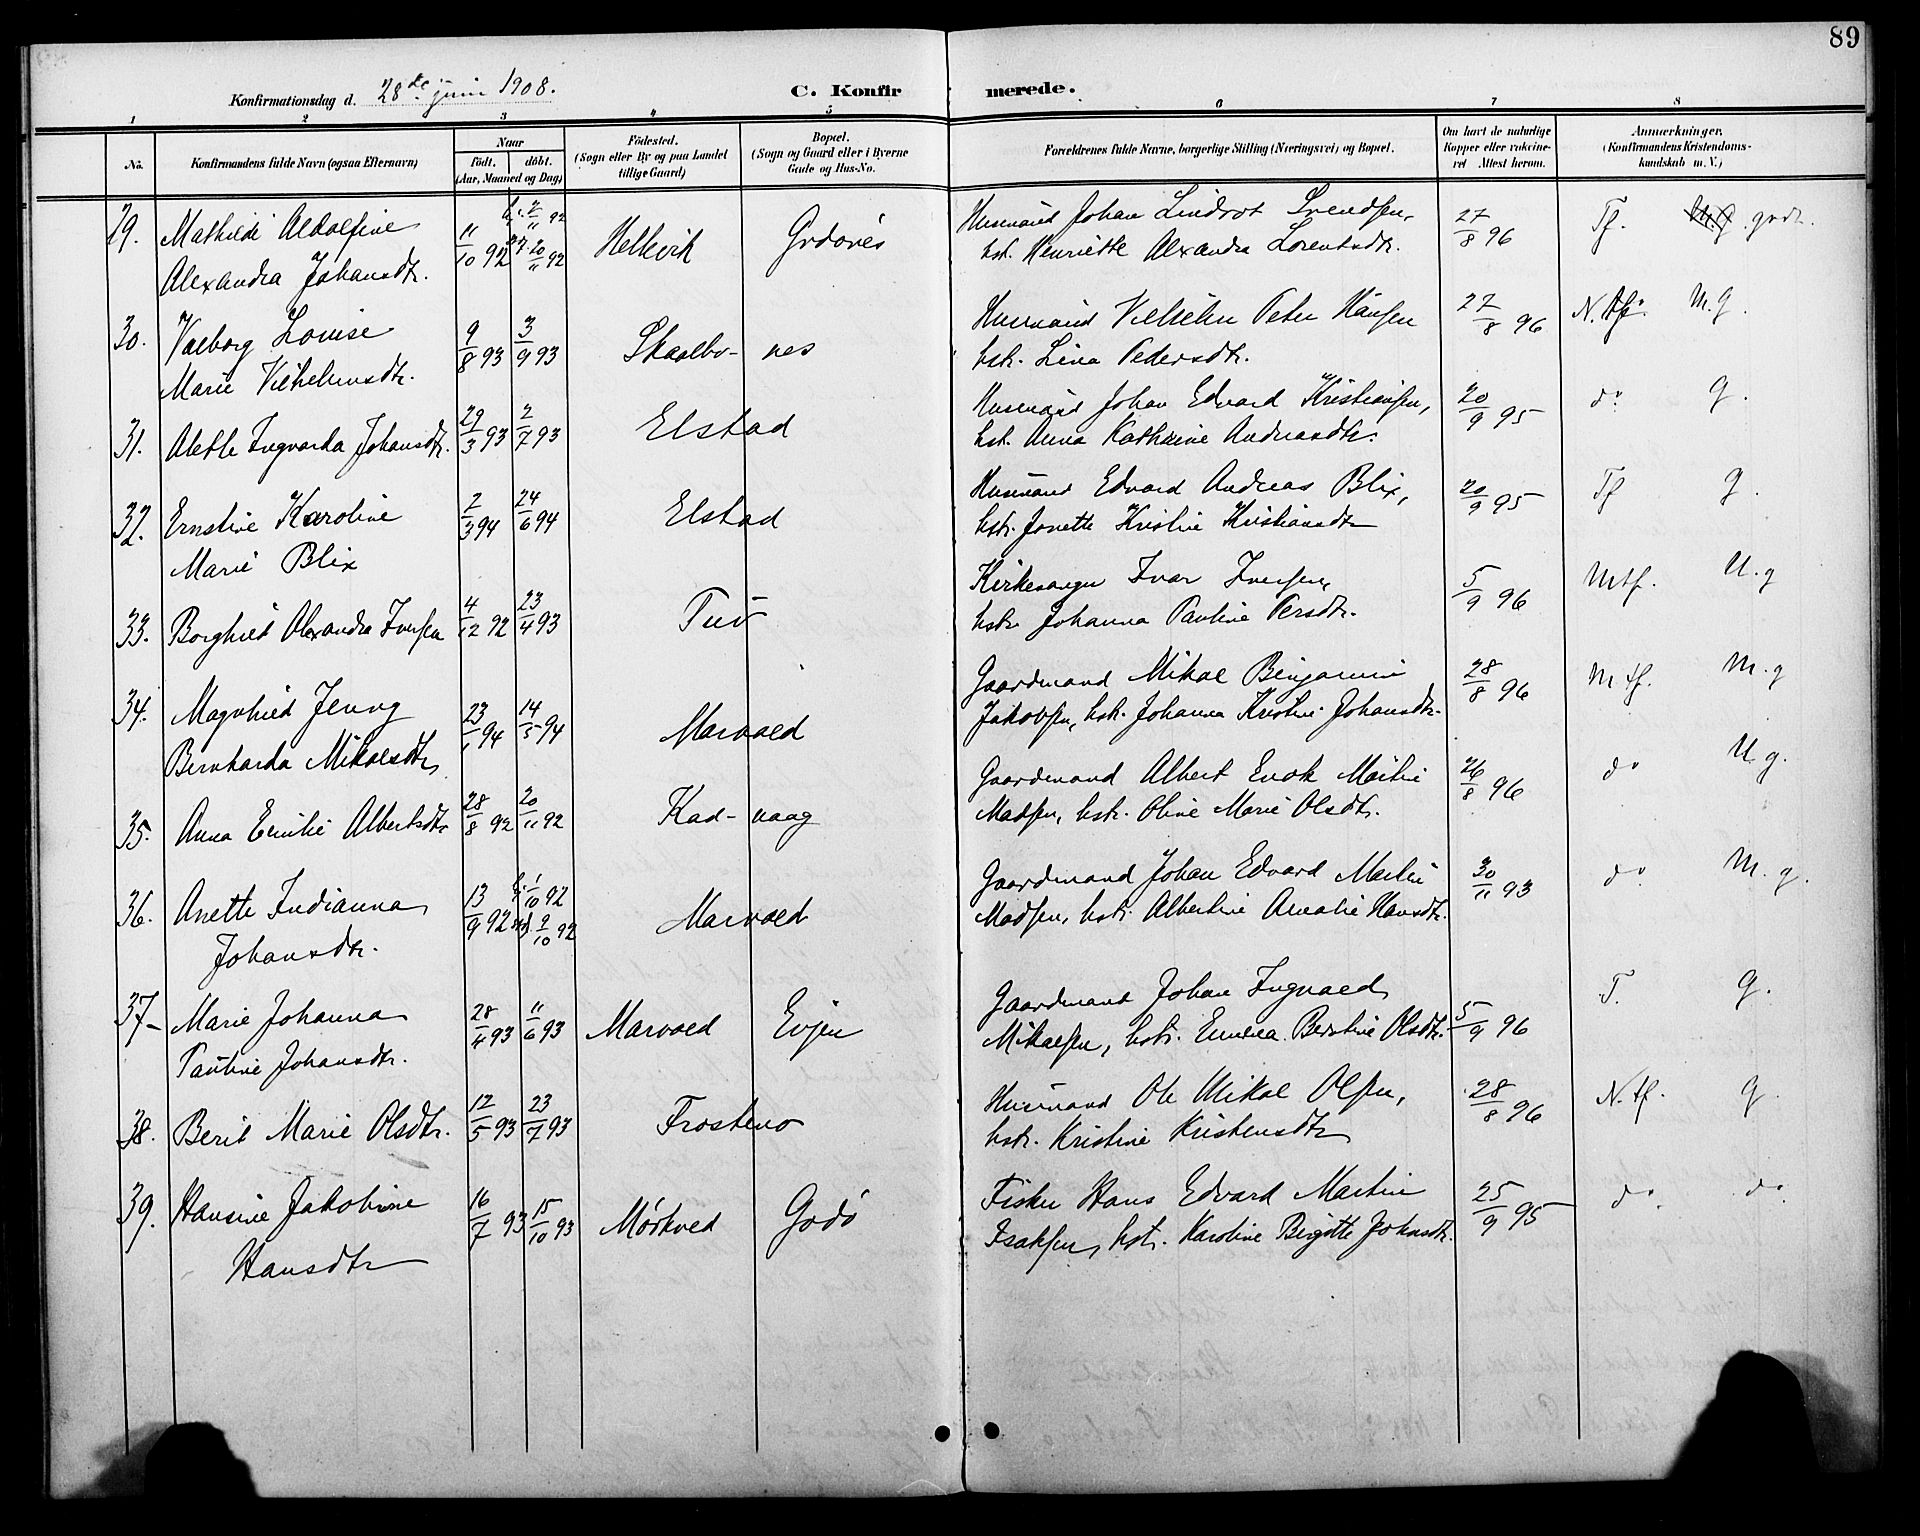 89
Konfirmationsdag d. 28de juni 1908.
C. Konfirmerede.
1 2 3 4 5 6 7 8
No. Konfirmandens fulde Navn (ogsaa Efternavn) Naar födt. döbt. (Aar, Maaned og Dag) Födested. (Sogn eller By og paa Landet tillige Gaard) Bopæl. (Sogn og Gaard eller i Byerne Gade og Hus-No. Forældrenes fulde Navne, borgerlige Stilling (Næringsvei) og Bopæl. Om havt de naturlige Kopper eller vaksineret Attest herom. Anmærkninger. (Konfirmandens Kristendomskundskab m. V.)
29. Mathilde Aldolfine 11/10 92 2/11 92 20/11 92 Hellevik Godønes Husmand Johan Lindrot Svendsen, 27/8 96 Tf. godt.
Alexandra Johansdtr. hstr. Henriette Alexandra Lorentsdtr.
30. Valborg Lovise 9/8 93 3/9 93 Skaalbones Husmand Vilhelm Peter Hansen 27/8 96 N. tf. M.g.
Marie Vilhelmsdtr. hstr. Lina Pedersdtr.
31. Alette Ingvarda Johansdtr. 29/3 93 2/7 93 Elstad Husmand Johan Edvard Kristiansen, 20/9 95 do g.
hst. Anna Kathrine Andreasdtr.
32. Ernstine Karoline 2/3 94 24/6 94 Elstad Husmand Edvard Andreas Blix, 20/9 95 Tf g.
Marie Blix hstr. Jonette Kristine Kristiansdtr
33. Borghild Alexandra Iversen 4/12 92 23/4 93 Tuv Kirkesanger Ivar Iversen, 5/9 96 Mtf. U.g
hstr. Johanna Pauline Persdtr.
34. Magnhild Jenny 23/1 94 14/5 94 Marvold Gaardmand Mikal Benjamin 28/8 96 Mtf. M.g
Bernharda Mikalsdtr Jakobsen, hstr. Johanna Kristine Johansdtr.
35. Anna Emilie Albertsdtr 28/8 92 20/11 92 Kadvaag Gaardmand Albert Enok Martin 26/8 96 do U g.
Madsen, hstr. Oline Marie Olsdtr.
36. Anette Indianna 13/9 92 1/10 92 9/10 92 Marvold Gaardmand Johan Edvard Martin 30/11 93 do M.g.
Johansdtr. Madsen, hstr. Albertine Amalie Hansdtr.
37 Marie Johanna 28/4 93 11/6 93 Marvold Evjen Gaardmand Johan Ingvald 5/9 96 T. g.
Pauline Johansdtr. Mikalsen, hstr. Emelia Berntine Olsdtr.
38. Berit Marie Olsdtr. 12/5 93 23/7 93 Frostmo Husmand Ole Mikal Olsen, 28/8 96 N. tf. g.
hstr. Kristine Kristensdtr
39. Hansine Jakobine 16/7 93 15/10 93 Mørkved Godø Fisker Hans Edvard Martin 25/9 95 do do
Hansdtr Isaksen, hstr. Karoline Birgitte Johnsdtr.